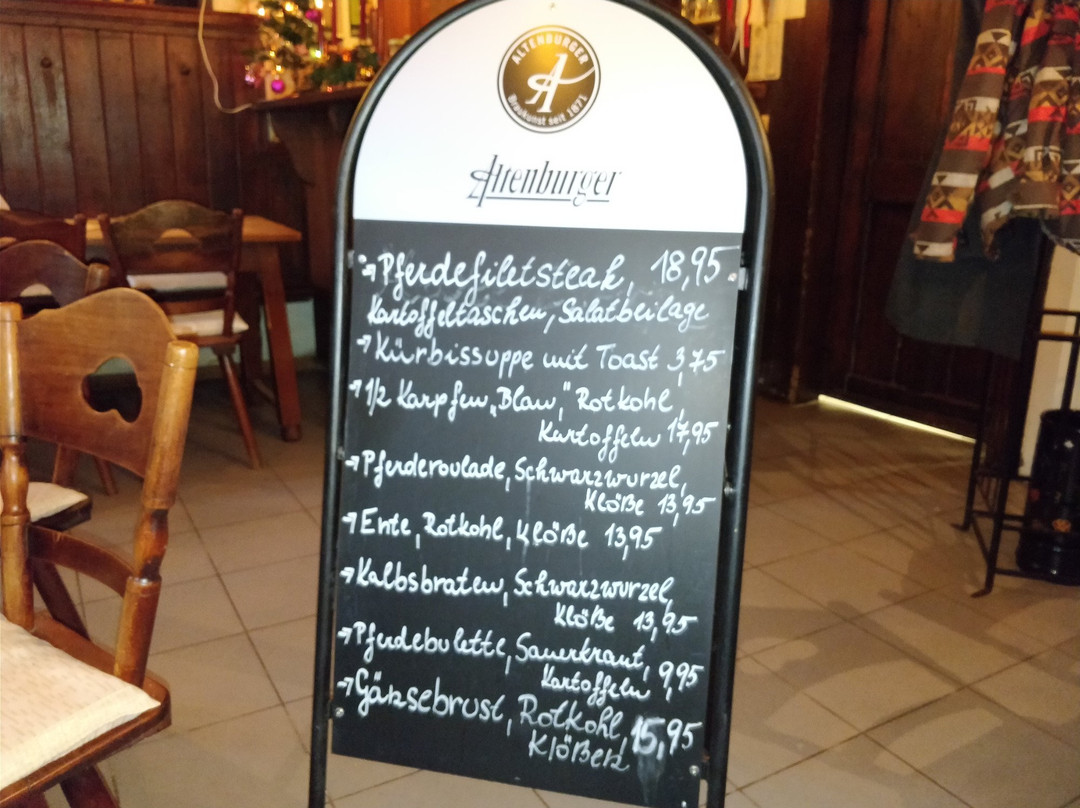 ALTENBURGER
Braukunst seit 1871
Altenburger
Pferdefiletsteak, 18,95
Kartoffeltaschen, Salatbeilage
Kürbissuppe mit Toast 3,75
1/2 Karpfen „Blau“ Rotkohl,
Kartoffeln 17,95
Pferderoulade, Schwarzwurzel,
Klöße 13,95
Ente, Rotkohl, Klöße 13,95
Kalbsbraten, Schwarzwurzel,
Klöße 13,95
Pferdebulette, Sauerkraut,
Kartoffeln 9,95
Gänsebrust, Rotkohl, 15,95
Klößen